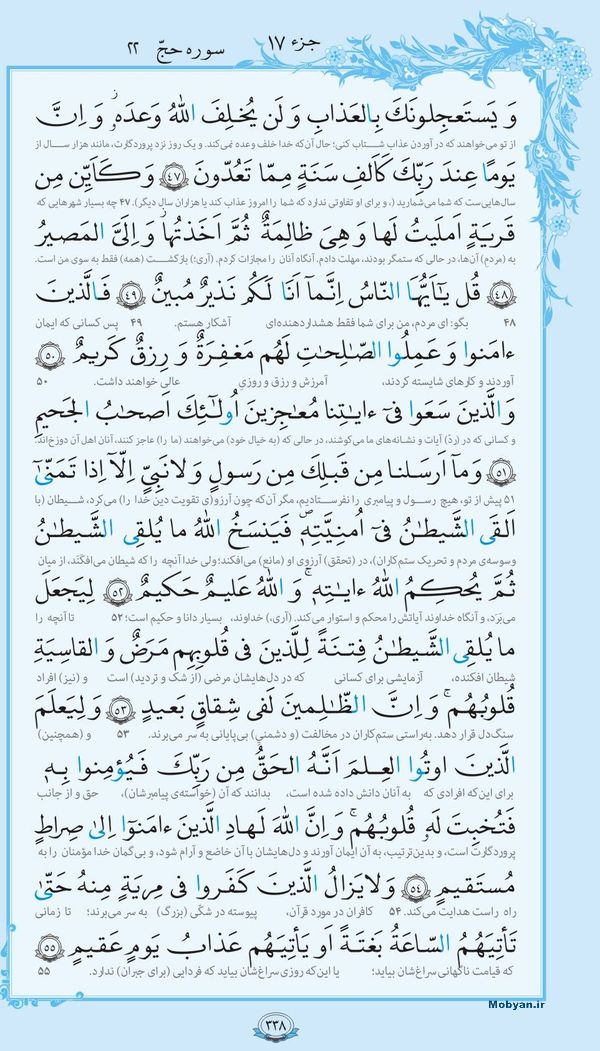 جزء ۱۷
سوره حجّ ۲۲
وَ یَستَعجِلونَكَ بِالعَذابِ وَ لَن یُخلِفَ اللهُ وَعدَهُ وَ اِنَّ
از تو می‌خواهند که در آوردن عذاب شتاب کنی؛ حال آن‌که خدا خلف وعده نمی‌کند. و یک روز نزد پروردگارت، مانند هزار سال از
یَومًا عِندَ رَبِّكَ کَاَلفِ سَنَةٍ مِمّا تَعُدّونَ ﴿۴۷﴾ وَ کَاَیِّن مِن
سال‌هایی‌ست که شما می‌شمارید (، و برای او تفاوتی ندارد که شما را امروز عذاب کند یا هزاران سال دیگر). ۴۷ چه بسیار شهرهایی که
قَریَةٍ اَملَیتُ لَها وَ هِیَ ظالِمَةٌ ثُمَّ اَخَذتُها وَ اِلَیَّ المَصیرُ
به (مردم) آن‌ها، در حالی که ستمگر بودند، مهلت دادم. آنگاه آنان را مجازات کردم. (آری؛) بازگشت (همه) فقط به سوی من است.
﴿۴۸﴾ قُل یٰاَیُّهَا النّاسُ اِنَّماۤ اَنَا لَکُم نَذیرٌ مُبینٌ ﴿۴۹﴾ فَالَّذینَ
۴۸ بگو: ای مردم، من برای شما فقط هشداردهنده‌ای آشکار هستم. ۴۹ پس کسانی که ایمان
ءامَنوا وَ عَمِلُوا الصّالِحاتِ لَهُم مَغفِرَةٌ وَ رِزقٌ کَریمٌ ﴿۵۰﴾
آوردند و کارهای شایسته کردند، آمرزش و رزق و روزیِ عالی خواهند داشت. ۵۰
وَ الَّذینَ سَعَوا فیۤ ءایاتِنا مُعاجِزینَ اُولٰئِكَ اَصحابُ الجَحیمِ
و کسانی که در (ردّ) آیات و نشانه‌های ما می‌کوشند، در حالی که (به خیال خود) می‌خواهند (ما را) عاجز کنند، آنان اهل آن دوزخ‌اند.
﴿۵۱﴾ وَ ماۤ اَرسَلنا مِن قَبلِكَ مِن رَسولٍ وَ لا نَبِیٍّ اِلّاۤ اِذا تَمَنّیٰۤ
۵۱ پیش از تو، هیچ رسول و پیامبری را نفرستادیم، مگر آن‌که چون آرزو(ی تقویت دین خدا را) می‌کرد، شیطان (با
اَلقَی الشَّیطانُ فیۤ اُمنِیَّتِهِ فَیَنسَخُ اللهُ ما یُلقِی الشَّیطانُ
وسوسه‌ی مردم و تحریک ستم‌کاران)، در (تحقق) آرزوی او (مانع) می‌افکند؛ ولی خدا آنچه را که شیطان می‌افکَنَد، از میان
ثُمَّ یُحکِمُ اللهُ ءایاتِهِ وَ اللهُ عَلیمٌ حَکیمٌ ﴿۵۲﴾ لِیَجعَلَ
می‌بَرَد، و آنگاه خداوند آیاتش را محکم و استوار می‌کند. (آری،) خداوند، بسیار دانا و حکیم است؛ ۵۲ تا آنچه را
ما یُلقِی الشَّیطانُ فِتنَةً لِلَّذینَ فی قُلوبِهِم مَرَضٌ وَ القاسِیَةِ
شیطان افکنده، آزمایشی برای کسانی که در دل‌هایشان مرضی (از شک و تردید) است و (نیز) افراد
قُلوبُهُم وَ اِنَّ الظّالِمینَ لَفی شِقاقٍ بَعیدٍ ﴿۵۳﴾ وَ لِیَعلَمَ
سنگ‌دل قرار دهد. به‌راستی ستم‌کاران در مخالفت (و دشمنیِ) بی‌پایانی به سر می‌برند. ۵۳ و (همچنین)
الَّذینَ اوتُوا العِلمَ اَنَّهُ الحَقُّ مِن رَبِّكَ فَیُؤمِنوا بِهِ
برای این‌که افرادی که به آنان دانش داده شده است، بدانند که آن (خواسته‌ی پیامبرشان)، حق و از جانب
فَتُخبِتَ لَهُ قُلوبُهُم وَ اِنَّ اللهَ لَهادِ الَّذینَ ءامَنوۤا اِلیٰ صِراطٍ
پروردگارت است، و بدین‌ترتیب، به آن ایمان آورند و دل‌هایشان با آن خاضع و آرام شود، و بی‌گمان خدا مؤمنان را به
مُستَقیمٍ ﴿۵۴﴾ وَ لا یَزالُ الَّذینَ کَفَروا فی مِریَةٍ مِنهُ حَتّیٰ
راه راست هدایت می‌کند. ۵۴ کافران در مورد قرآن، پیوسته در شکّی (بزرگ) به سر می‌برند؛ تا زمانی
تَأتِیَهُمُ السّاعَةُ بَغتَةً اَو یَأتِیَهُم عَذابُ یَومٍ عَقیمٍ ﴿۵۵﴾
که قیامت ناگهانی سراغشان بیاید؛ یا این‌که روزی سراغشان بیاید که فردایی (برای جبران) ندارد. ۵۵
۳۳۸
Mobyan.ir